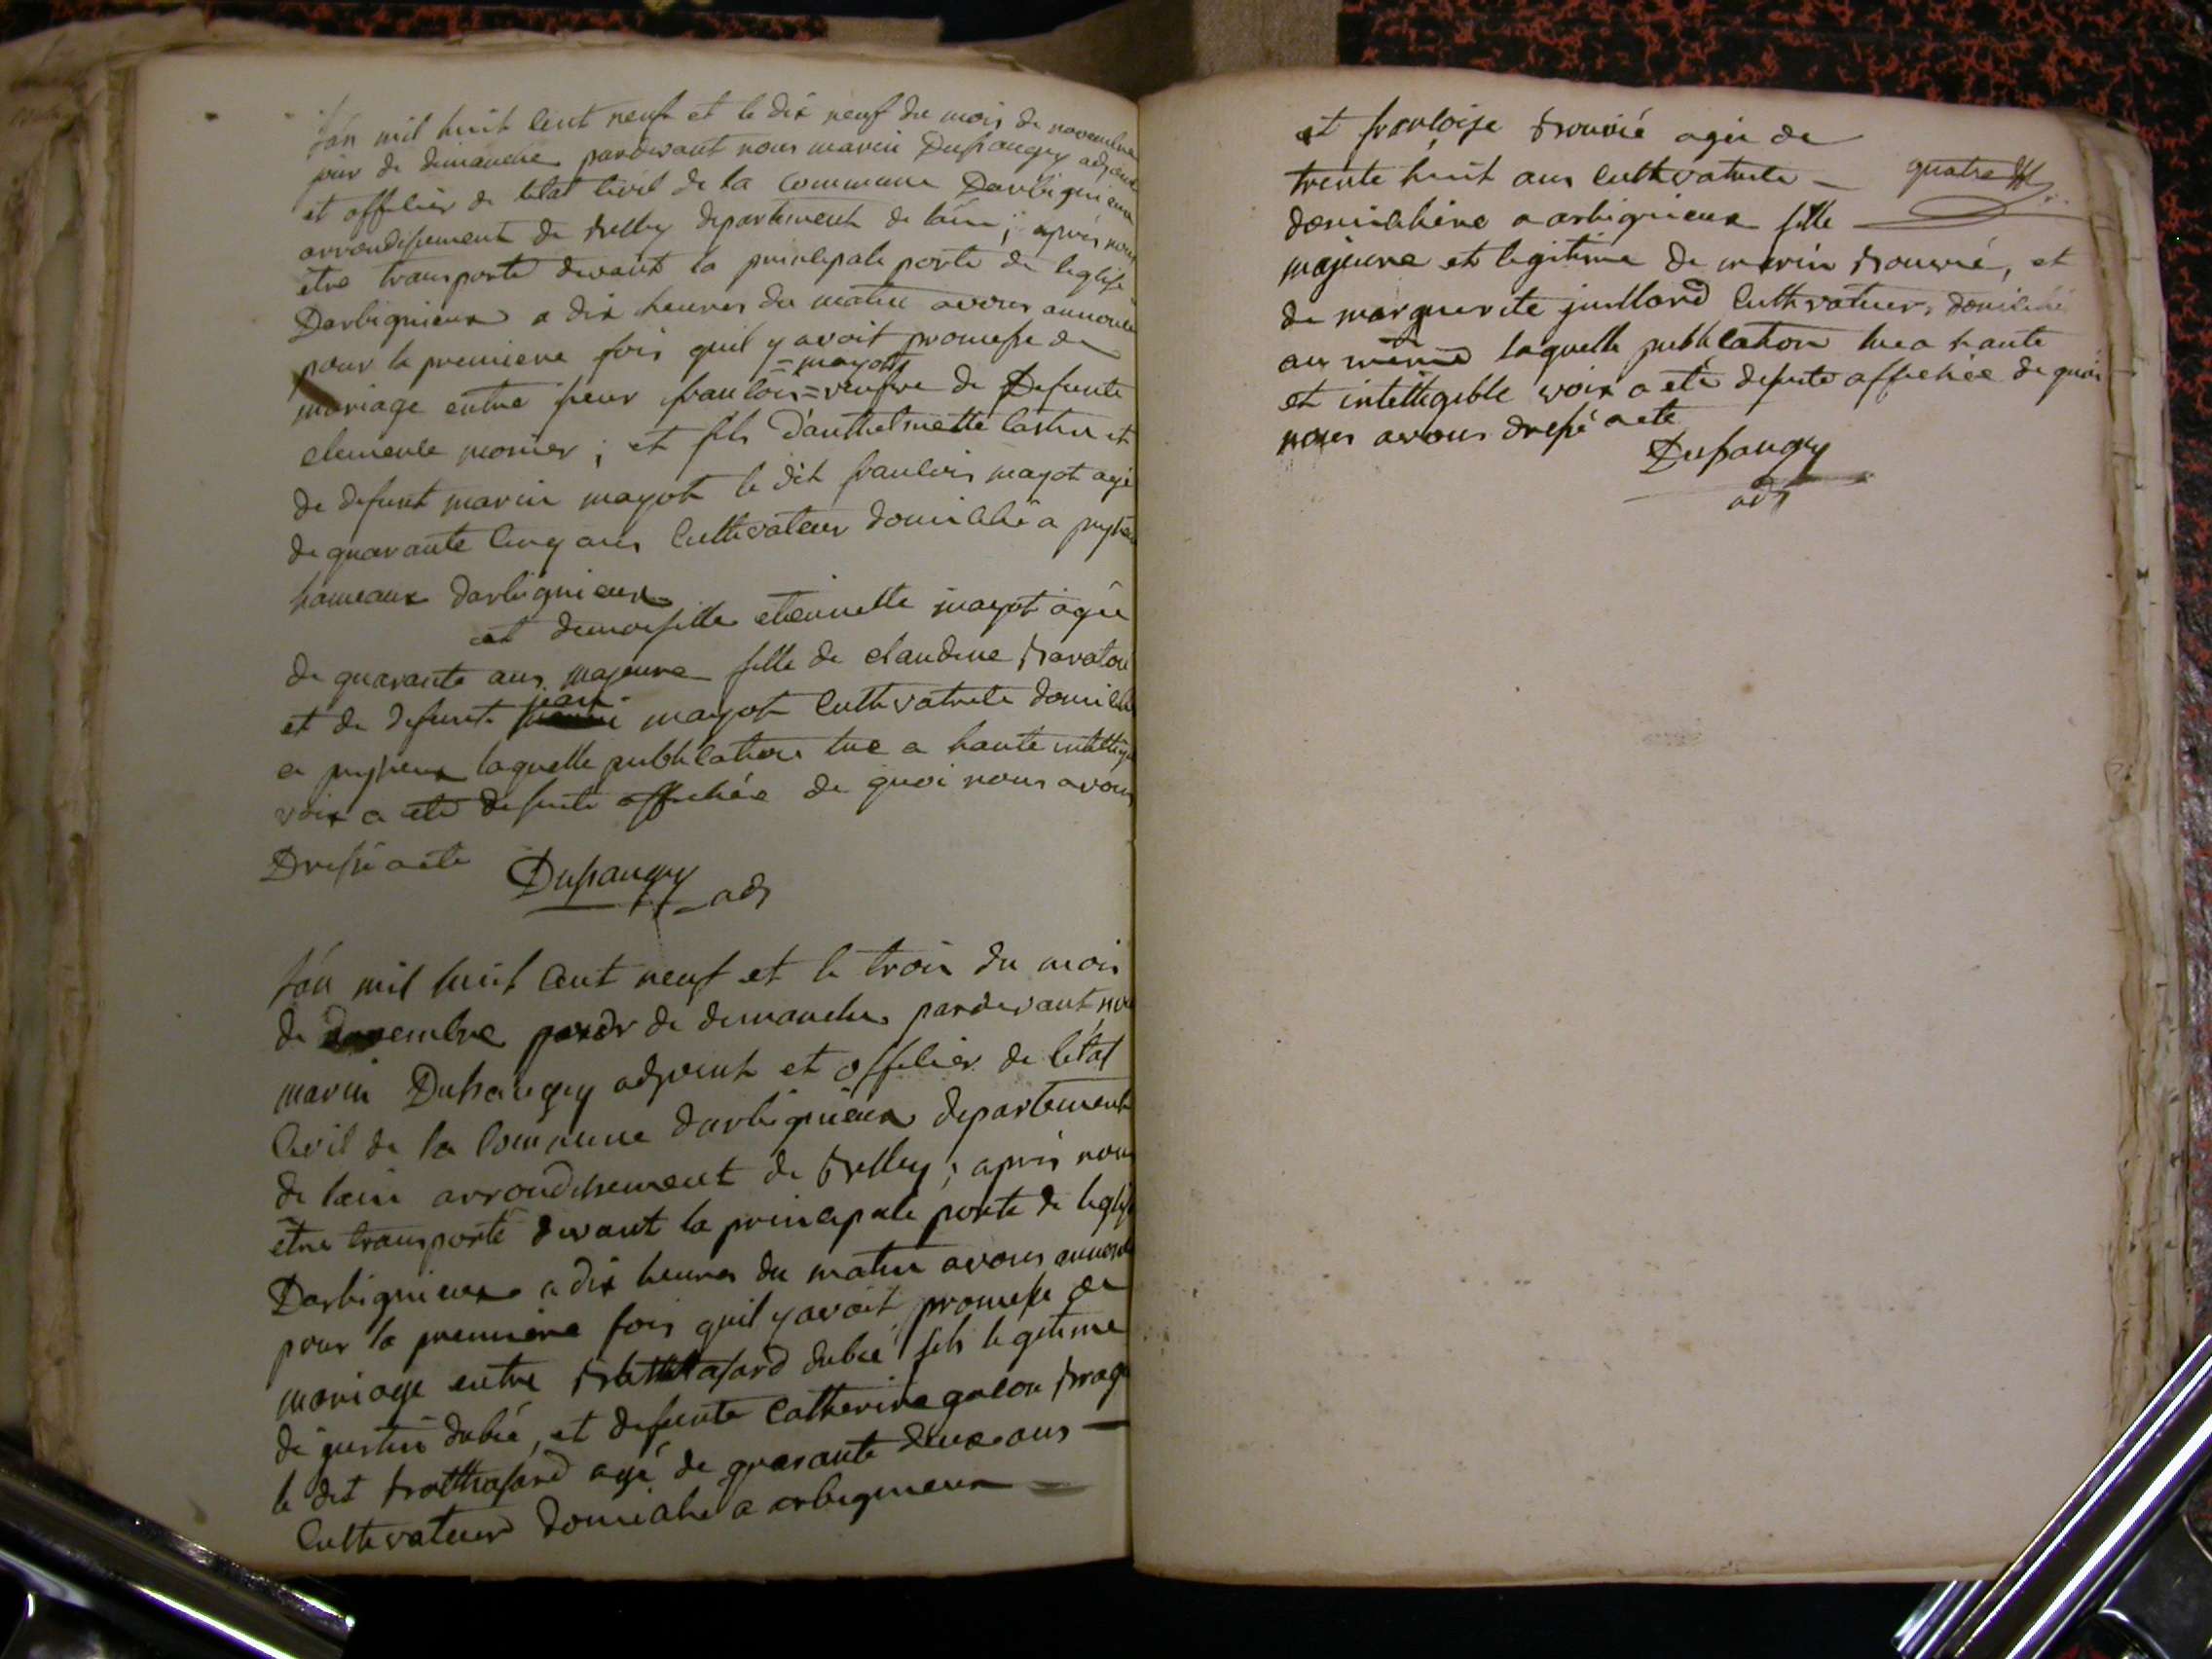 l'an mil huit cent neuf et le dix neuf du mois de novembre
jour de dimanche pardevant nous marin Dufraugey adjoint
et officier de letat civil de la commune Darbignieux
arrondissement de belley departement de lain; apres nous
etre transporté devant la principale porte de leglise
Darbignieux a dix heures du matin avons annoncé
pour la premiere fois quil y avoit promesse de
= mayot
mariage entre sieur francois = veufve de Defunte
clemence monier; et fils d'anthelmette et
de defunt marin mayot le dit francois mayot agé
de quarante cinq ans cultivateur domicilié a
hameaux darbignieux
et demoiselle etiennette mayot agée
de quarante ans majeure fille de claudine
jean
et de defunt mayot cultivatrice domicilié
a laquelle publication lue a haute intelligible
voix a eté desuite affichée de quoi nous avons
Dressé acte Dufraugey adj
l'an mil huit cent neuf et le trois du mois
de decembre jour de dimanche pardevant nous
marin Dufraugey adjoint et officier de létat
civil de la commune darbignieux departement
de lain arrondissement de belley; après nous
etre transporté devant la principale porte de leglise
Darbignieux a dix heures du matin avons annoncé
pour la première fois quil y avoit promesse de
mariage entre fils legitime
de justin et defunte Catherine
le dit agé de quarante deux ans —
Cultivateur domicilié a arbignieux —
et françoise agée de
trente huit ans cultivatrice — quatre
domiciliée a arbignieux fille
majeure et legitime de marin et
de marguerite juillard cultivateur, domicilié
au même laquelle publication lue a haute
et intelligible voix a eté desuite affichée de quoi
nous avons dressé acte
Dufraugey
adj